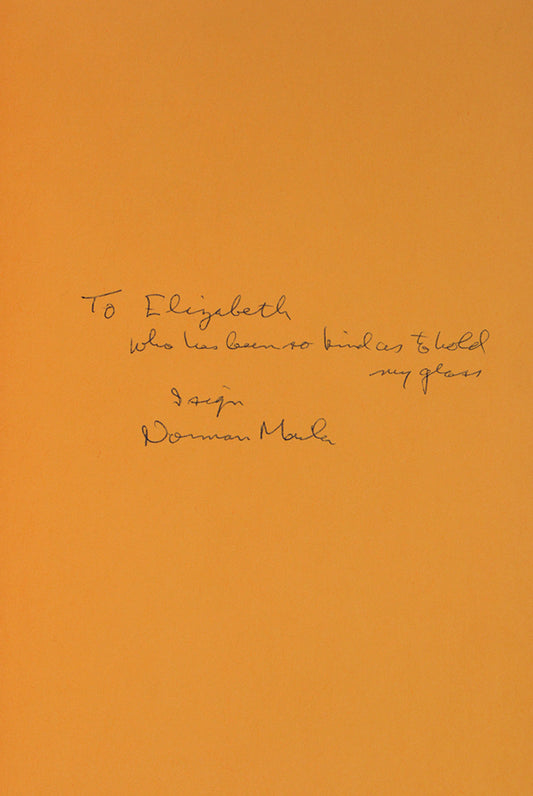 To Elizabeth
who has been so kind as to hold
my glass
I sign
Norman Mailer